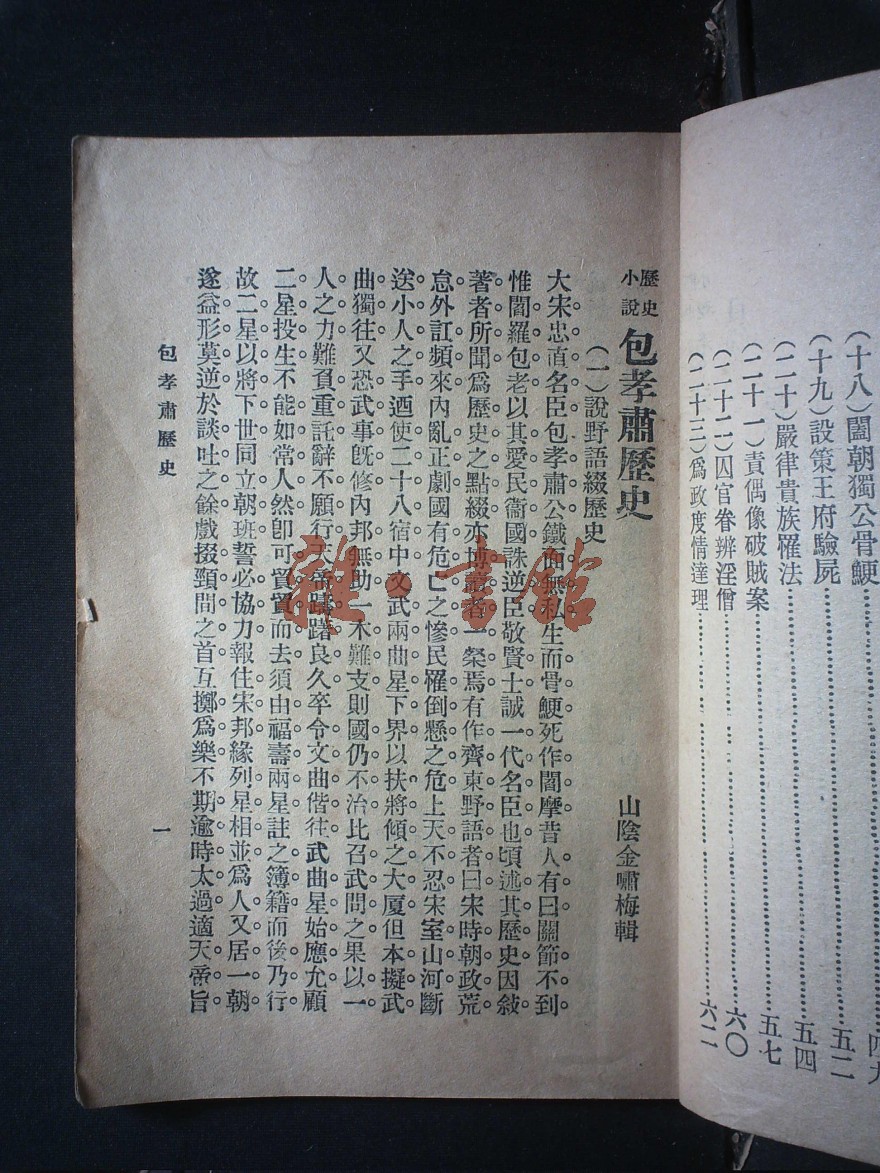 （十八）闔朝獨公骨鯁……四九
（十九）設策王府驗屍……五二
（二十）嚴律貴族罹法……五四
（二十一）責偶像破賊案……五七
（二十二）囚官眷辨淫僧……六〇
（二十三）爲政度情達理……六二
歷史小說 包孝肅歷史
山陰金嘯梅輯
（一）說野語綴歷史
大宋忠直名臣包孝肅公鐵面無私生而骨鯁死作閻摩昔人有曰關節不到
惟閻羅包老以其愛民衞國誅逆臣敬賢士誠一代名臣也頃述其歷史因敍
著者所聞爲歷史之點綴亦博讀者一粲焉有作齊東野語者曰宋時朝政荒
怠外訌頻來內亂正劇國有危亡之慘民罹倒懸之危上天不忍宋室山河斷
送小人之手迺使二十八宿中文武兩曲星下界以扶將傾之大厦但本擬武
曲獨往又恐武事旣修內邦無助一木難支則國仍不治比召武問之果以一
人之力難負重託辭不願行天帝躊躇良久卒令文曲偕往武曲星始應允顧
二星投生不能如常人然卽可貿貿而去須由福壽兩星註之簿籍而後乃行
故二星以將下世同立朝班誓必協力報住宋邦緣列星相並爲人又居一朝
遂益形莫逆於談吐之餘戲掇頸間之首互擲爲樂不期逾時太過適天帝旨
包孝肅歷史
一
雜·書館